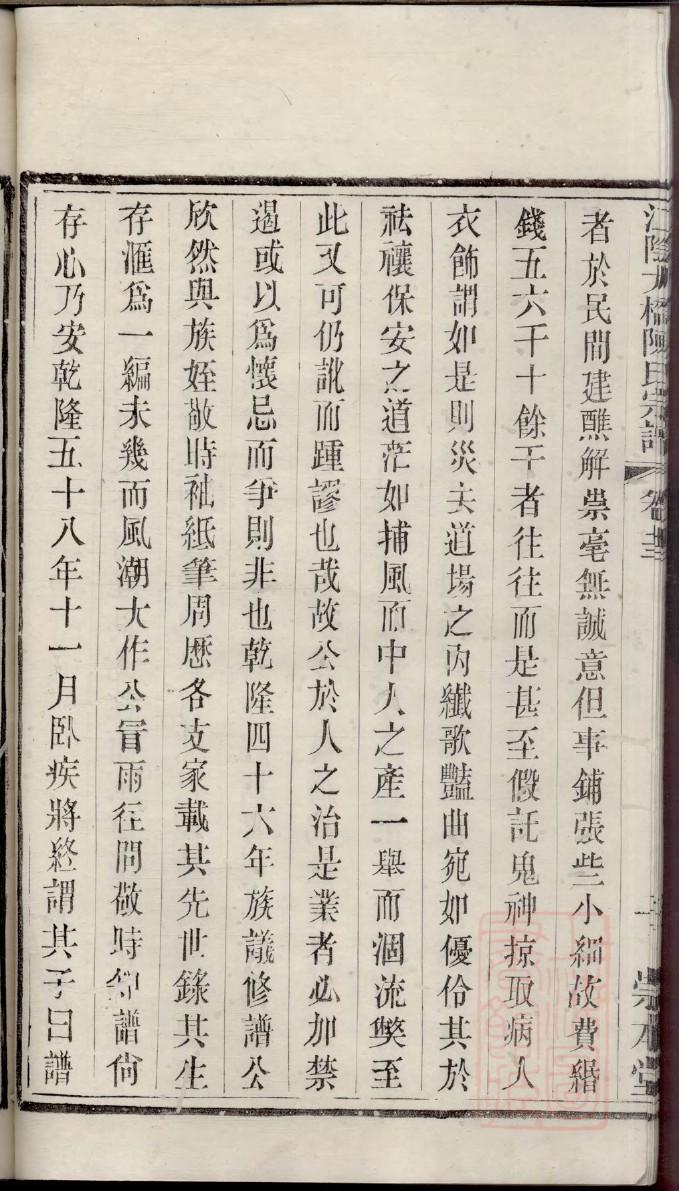 江陰大橋陳氏宗譜 卷十三 崇本堂
者於民間建醮解祟毫無誠意但事鋪張些小細故費緡
錢五六千十餘千者往往而是甚至假託鬼神掠取病人
衣飾謂如是則災去道場之內纖歌豔曲宛如優伶其於
祛禳保安之道茫如捕風而中人之產一舉而涸流獘至
此又可仍訛而踵謬也哉故公於人之治是業者必加禁
遏或以爲懷忌而爭則非也乾隆四十六年族議修譜公
欣然與族姪敬時袖紙筆周歷各支家載其先世錄其生
存滙爲一編未幾而風潮大作公冒雨徃問敬時知譜尙
存心乃安乾隆五十八年十一月卧疾將終謂其子曰譜